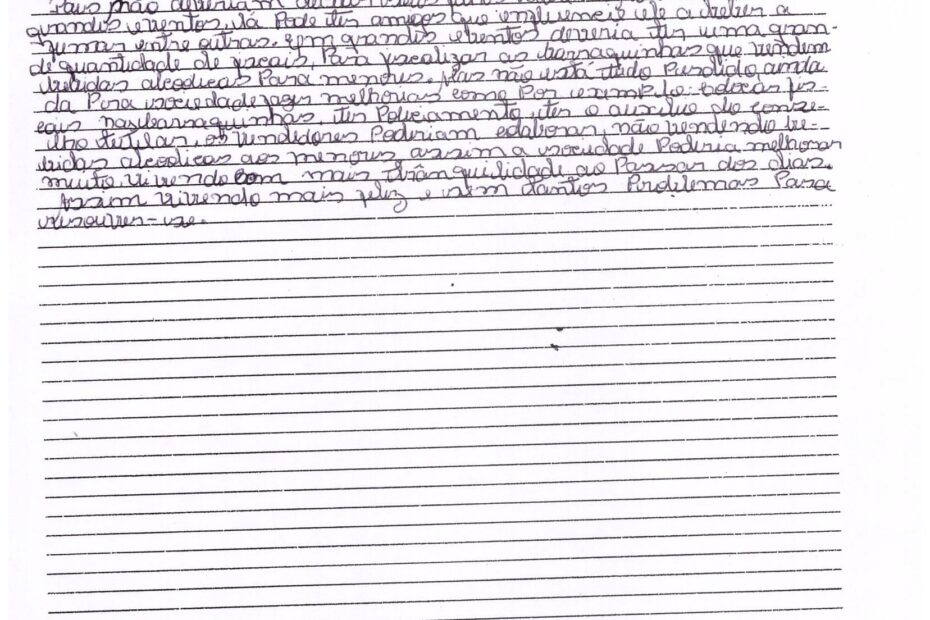 Pais não deveriam deixar
grandes eventos, lá Pode ter amigos que influencie ele a beber a
fumar entre outras. Em grandes eventos deveria ter uma gran-
de quantidade de fiscais, Para fiscalizar as barraquinhas que vendem
bebidas alcoolicas Para menores. Mas não está tudo Perdido, ainda
da Para sociedade fazer melhorias como Por exemplo: colocar fis-
cais nas barraquinhas, ter Policiamento, ter o auxilio do conse-
lho tutelar, os vendedores Poderiam colaborar, não vendendo be-
bidas alcoolicas aos menores assim a sociedade Poderia melhorar
muito, vivendo com mais tranquilidade ao Passar dos dias.
Assim vivendo mais feliz e sem tantos Problemas Para
resouver-se.